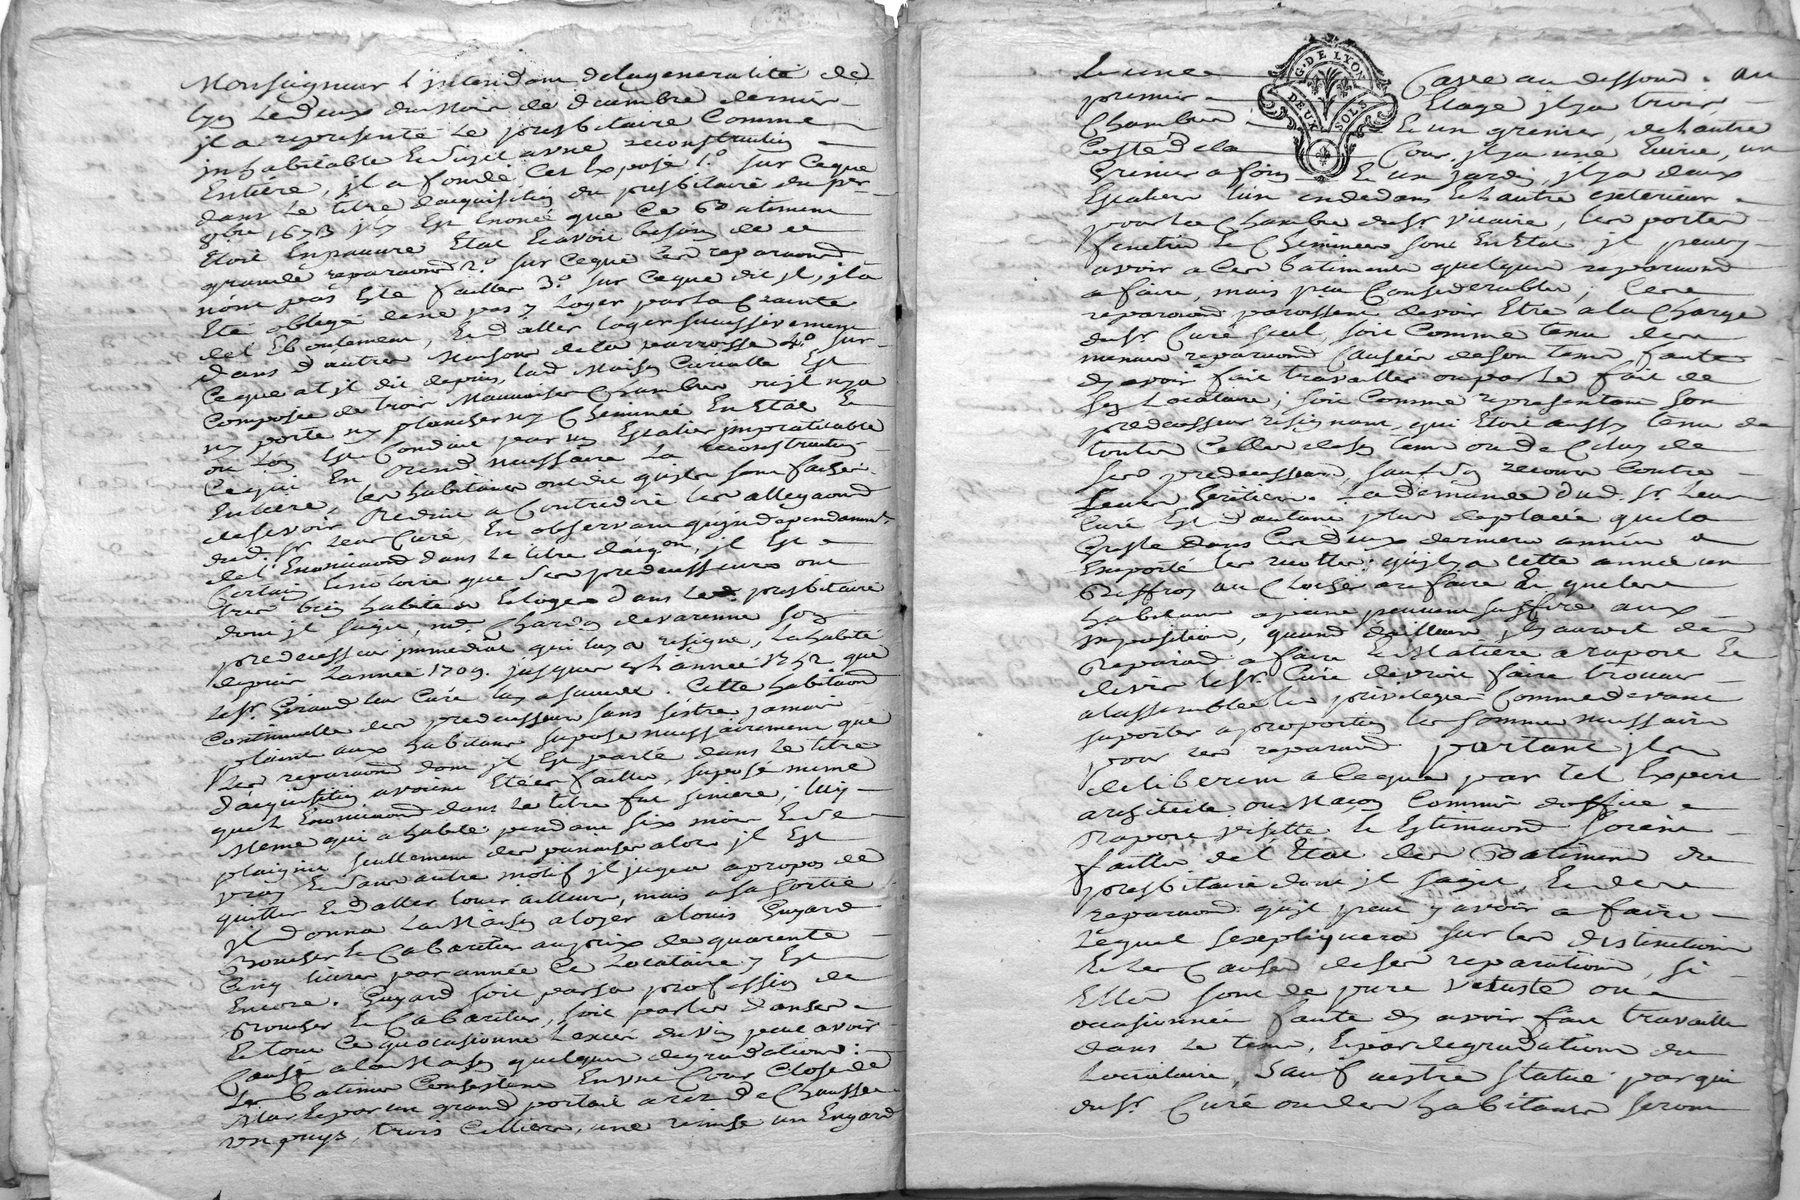 Monseigneur l'jntendant delageneralité de
Lyon Ledeux du Mois de decembre dernier
jl a representé Le presbitaire Comme
jnhabitable Et Sujet a une reconstruction
Entiére, jl a fondé Cet Exposé 1.º sur Ceque
dans Le titre dacquisition du presbitaire du per
8bre 1673 jl y Est Enoncé que Ce Batiment
Etoit En pauvre Etat Et avoit besoin de
grande reparaōns 2.º sur Ceque Ces reparaōns
nont pas Eté faittes 3.º sur Ceque dit jl, jl a
Eté obligé dene pas y Loger par la Crainte
del Eboulement, Et d'aller loger successivement
dans d'autres Maisons dela parroisse 4.º sur
Ceque at jl dit depuis, lad. Maison Curialle Est
Composée de trois Mauvaises Chambres ou jl nya
ny porte ny plancher ny Cheminée En Etat Et
ou Lon Est Conduit par un Escalier jmpraticable
Cequi En rend necessaire La reconstruction
Entiere, les habitans ont dit qu'jls sont fachés
de se voir reduits a Contredire les allegaōns
dud. Sr. leur Curé, En observant qujndependamment
del' Enonciaōn dans Le titre dacq.on, jl Est
Certain Et notoire que Ses predecesseurs ont
tres bien habité Et Logé dans Led. presbitaire
dont jl sagit, m.e Chardon devarenne son
predecesseur jmmediat qui luy a resigné, La habité
depuis Lannée 1709. jusques En Lannée 1752. que
Le Sr. Giraud leur Curé luy a succedé. Cette habitaōn
Continuelle des predecesseurs sans s'estre jamais
plaint aux habitans supose necessairement que
Les reparaōns dont jl Est parlé dans Le titre
d'acquisition avoient Eté faittes, supposé meme
que L' Enonciaōn dans Le titre fut sincere; luy
Meme qui a habité pendant six mois Et se
plaignit seullement des punaises alors jl Est
vray Et sans autre motif jl jugea apropos de
quitter Et daller louer ailleurs, mais a sa sortie
jl donna La Maison a loyer a louis Guyard
Boucher Et Cabaretier au prix de quarente
Cinq livres par année Ce Locataire y Est
Encore. Guyard soit par sa profession de
Boucher Et Cabaretier, soit par les danses
Et tout Ce quocasionne Lexcés du vin peut avoir
Causé a la Maison quelques degradations:
Les batimens Consistent En une Cour Close de
Mur Et par un grand portail a rez de Chaussée
un puys, trois Celliers, une remise un Engard
Et une Cave au dessous. au
premier Etage jl y a trois
Chambres Et un grenier, de l'autre
Costé de la Cour jl y a une Ecurie, un
Grenier a foin Et un jardin, jl y a deux
Escaliers l'un endedans Et l'autre exterieur
pour la Chambre du Sr. Vicaire, les portes
fenetres Et Cheminées sont En Etat, jl peut y
avoir a Ces batimens quelques reparaōns
a faire, mais peu Considerables; Ces
reparaōns paroissent devoir Etre a la Charge
du Sr. Curé seul, soit Comme tenu des
menues reparaōns Causées de son tems, faute
d'y avoir fait travailler ou par le fait de
son Locataire, soit Comme representant son
predecesseur resignant, qui Etoit aussy tenu de
toutes Celles de son tems ou de Celuy de
ses predecesseurs, sauf son recours Contre
Leurs heritiers. La demande dud. Sr. Leur
Curé Est d'autant plus deplacée que la
Gresle dans Ces deux dernieres années a
Emporté les recoltes, qu'jl y a cette année un
Beffroy au Clocher a refaire Et que les
habitans a peine peuvent suffire aux
jmpositions, quand d'ailleurs jl y auroit des
Reparaōns a faire Et Matiére a raport Et
devis Le Sr. Curé devroit faire trouver
a lassemblée les privilegiés Comme devant
suporter a proportion les sommes necessaires
pour Les reparaōns. partant jls
deliberent a Ceque par tel Expert
architecte ou Macon Commis d'office
Raport, visitte Et Estimaōn Soient
faittes del' Etat des Batimens du
presbitaire dont jl sagit Et des
reparaōns qu'jl peut y avoir a faire
Lequel sexpliquera sur les distinctions
Et Les Causes de ses reparations, si
Elles sont de pure Vetusté ou
ocasionnées faute d'y avoir fait travailler
dans Le tems, Et par degradations du
Locataire, Sauf aestre statué par qui
du Sr. Curé ou des habitans seront
G. DE LYON
DEUX SOLS